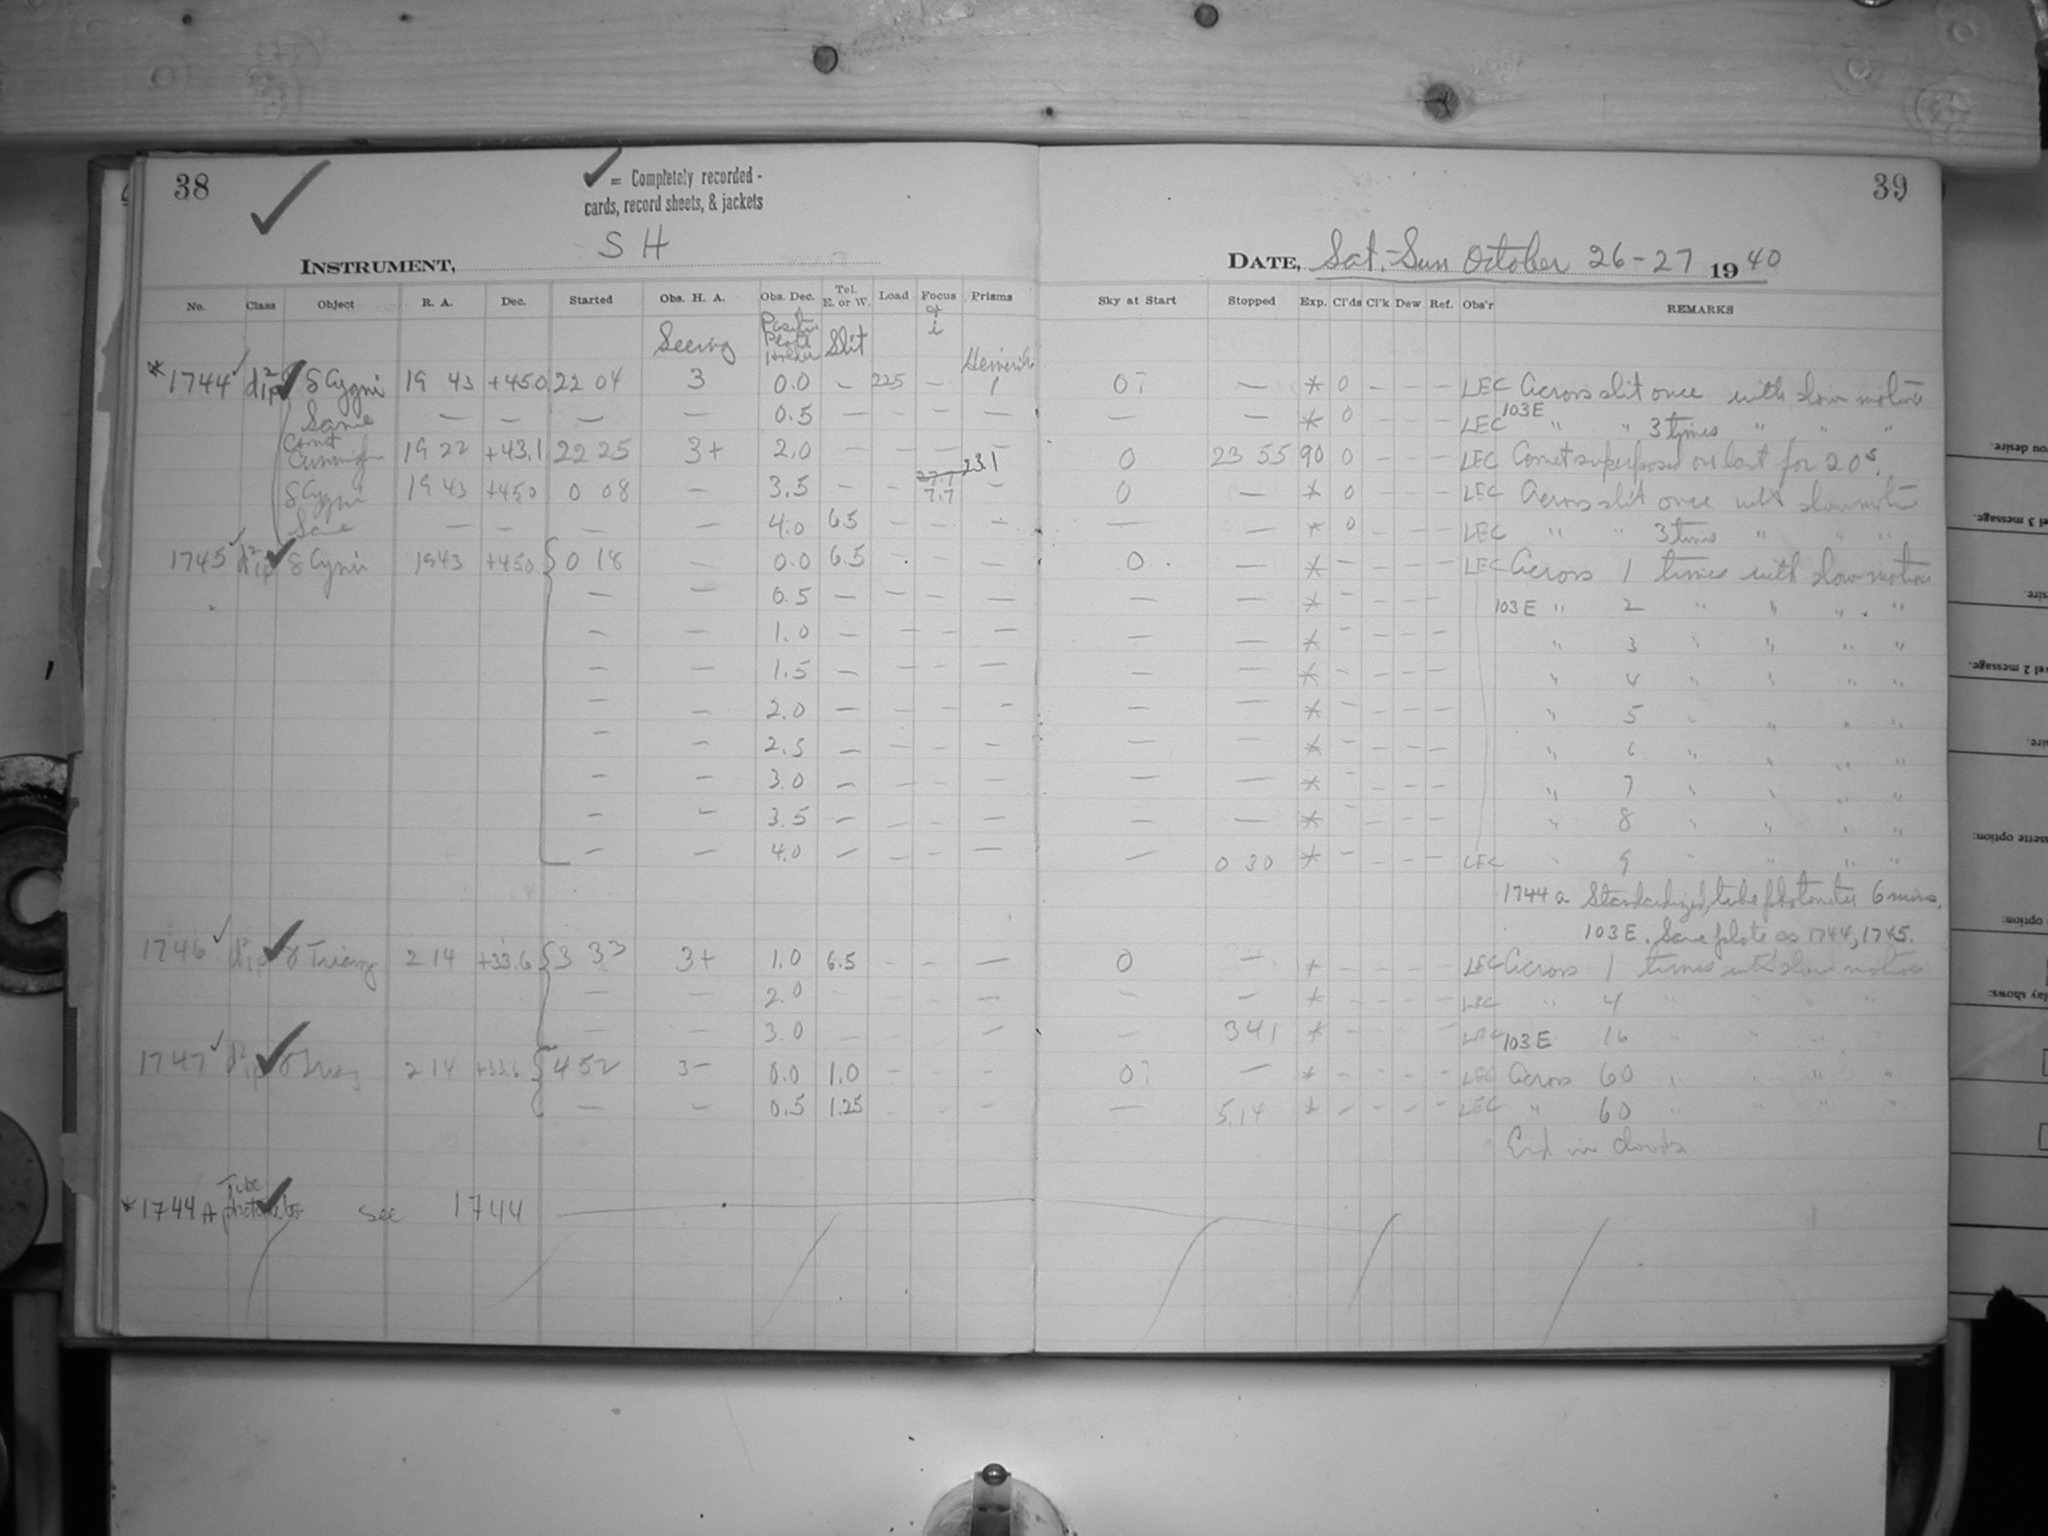 38
✓ = Completely recorded -
cards, record sheets, & jackets
INSTRUMENT, S H
No. Class Object R. A. Dec. Started Obs. H. A. Obs. Dec. Tel. E. or W. Load Focus Prisms
Seeing Slit of i
* 1744 δ Cygni 19 43 +45.0 22 04 3 0.0 – 225 – 1
Same — — — — 0.5 — — — —
Comet 19 22 +43.1 22 25 3+ 2.0 – – – –
23.1
δ Cygni 19 43 +45.0 0 08 – 3.5 – – 27.7 7.7 –
Same — — — — 4.0 6.5 – – –
1745 δ Cygni 1943 +45.0 0 18 – 0.0 6.5 – – –
— — 0.5 — — — —
– – 1.0 – – – –
– – 1.5 – – – –
– – 2.0 – – – –
– – 2.5 – – – –
– – 3.0 – – – –
– – 3.5 – – – –
– – 4.0 – – – –
1746 γ Triang 2 14 +33.6 3 33 3+ 1.0 6.5 – – –
– – 2.0 – – – –
– – 3.0 – – – –
1747 γ Triang 2 14 +33.6 4 52 3– 0.0 1.0 – – –
– – 0.5 1.25 – – –
* 1744 A Tube photometer see 1744
39
DATE, Sat.-Sun October 26-27 1940
Sky at Start Stopped Exp. Cl'ds Cl'k Dew Ref. Obs'r REMARKS
0? — * 0 – – – LEC Across slit once with slow motion
— — * 0 – – – LEC 103E " " 3 times " " "
0 23 55 90 0 – – – LEC Comet superposed on last for 20s.
0 — * 0 – – – LEC Across slit once with slow motion
— — * 0 – – – LEC " " 3 times " " "
0 — * – – – – LEC Across 1 times with slow motion
— — * – – – – 103E " 2 " " " "
— — * – – – – " 3 " " " "
— — * – – – – " 4 " " " "
— — * – – – – " 5 " " " "
— — * – – – – " 6 " " " "
— — * – – – – " 7 " " " "
— — * – – – – " 8 " " " "
— 0 30 * – – – – LEC " 9 " " " "
1744 a Standardized, tube photometer 6 mins.
103E. Same plate as 1744, 1745.
0 — * – – – – LEC Across 1 times with slow motion
– – * – – – – LEC " 4 " " " "
– 3 41 * – – – – LEC 103E 16 " " "
0? — * – – – – LEC Across 60 " " "
— 5 14 * – – – – LEC " 60 " " " "
End in clouds